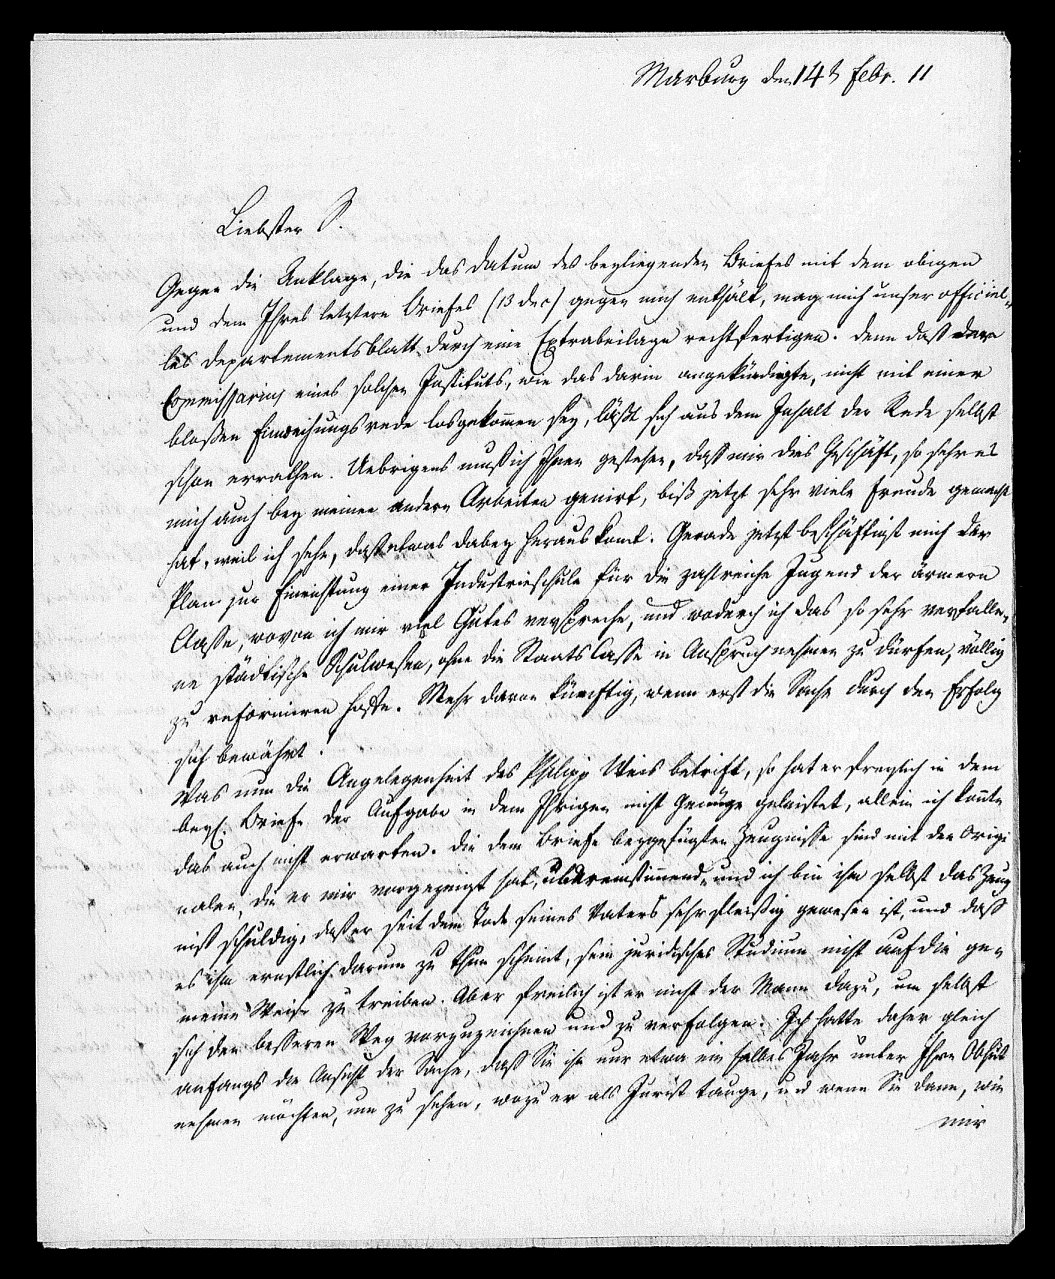 Marburg den 14t Febr. 11
Liebster S.
Gegen die Anklage, die das Datum des beyliegenden Briefes mit dem obigen
und dem Ihres letztern Briefes (13 Dec) gegen mich enthält, mag mich unser officiel-
les Departementsblatt durch eine Extrabeilage rechtfertigen. Denn daß der
Commissarius eines solchen Instituts, wie das darin angekündigte, nicht mit einer
bloßen Einweihungsrede losgekomen sey, läßt sich aus dem Inhalt der Rede selbst
schon errathen. Uebrigens muß ich Ihnen gestehen, daß mir dies Geschäft, so sehr es
mich auch bey meinen andern Arbeiten genirt, biß jetzt sehr viele Freude gemacht
hat, weil ich sehe, daß etwas dabey heraus komt. Gerade jetzt beschäftigt mich der
Plan zur Einrichtung einer Industrieschule für die zahlreiche Jugend der ärmern
Classe, wovon ich mir viel Gutes verspreche, und wodurch ich das so sehr verfalle-
ne städtische Schulwesen, ohne die StaatsCasse in Anspruch nehmen zu dürfen, völlig
zu reformiren hoffe. Mehr davon künftig, wenn erst die Sache durch den Erfolg
sich bewährt.
Was nun die Angelegenheit des Philipp Weis betrift, so hat er freylich in dem
beyl. Briefe der Aufgabe in dem Ihrigen nicht Genüge geleistet, allein ich konte
das auch nicht erwarten. Die dem Briefe beygefügten Zeugnisse sind mit den Origi-
nalen, die er mir vorgezeigt hat, übereinstimmend, und ich bin ihm selbst das Zeug
niß schuldig, daß er seit dem Tode seines Vaters sehr fleißig gewesen ist, und daß
es ihm ernstlich darum zu thun scheint, sein juridisches Studium nicht auf die ge-
meine Weise zu treiben. Aber freilich ist er nicht der Mann dazu, um selbst
sich den besseren Weg vorzuzeichnen und zu verfolgen. Ich hatte daher gleich
anfangs die Ansicht der Sache, daß Sie ihn nur etwa ein halbes Jahr unter Ihre Obhut
nehmen möchten, um zu sehen, wozu er als Jurist tauge, und wenn Sie dann, wie
mir